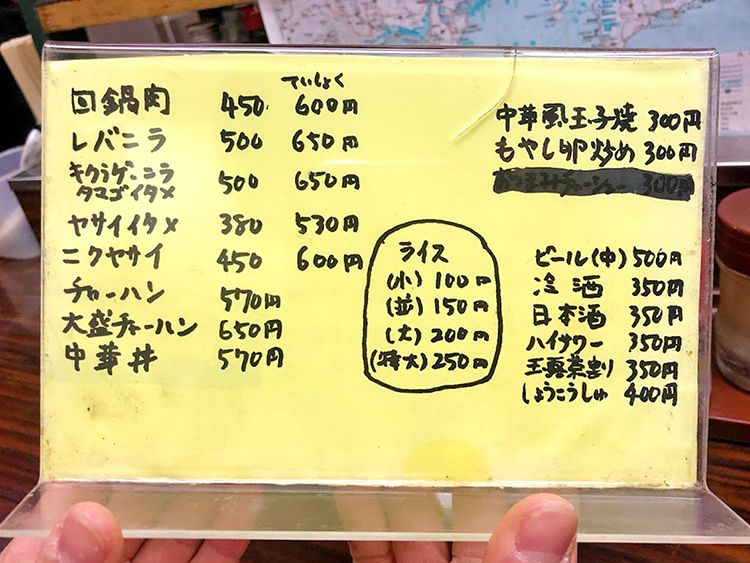 ていしょく
回鍋肉 450 600円
レバニラ 500 650円
キクラゲ・ニラ
タマゴイタメ 500 650円
ヤサイイタメ 380 530円
ニクヤサイ 450 600円
チャーハン 570円
大盛チャーハン 650円
中華丼 570円
ライス
(小) 100円
(並) 150円
(大) 200円
(特大) 250円
中華風玉子焼 300円
もやし卵炒め 300円
おつまみチャーシュー 300円
ビール(中) 500円
冷酒 350円
日本酒 350円
ハイサワー 350円
玉露茶割 350円
しょうこうしゅ 400円